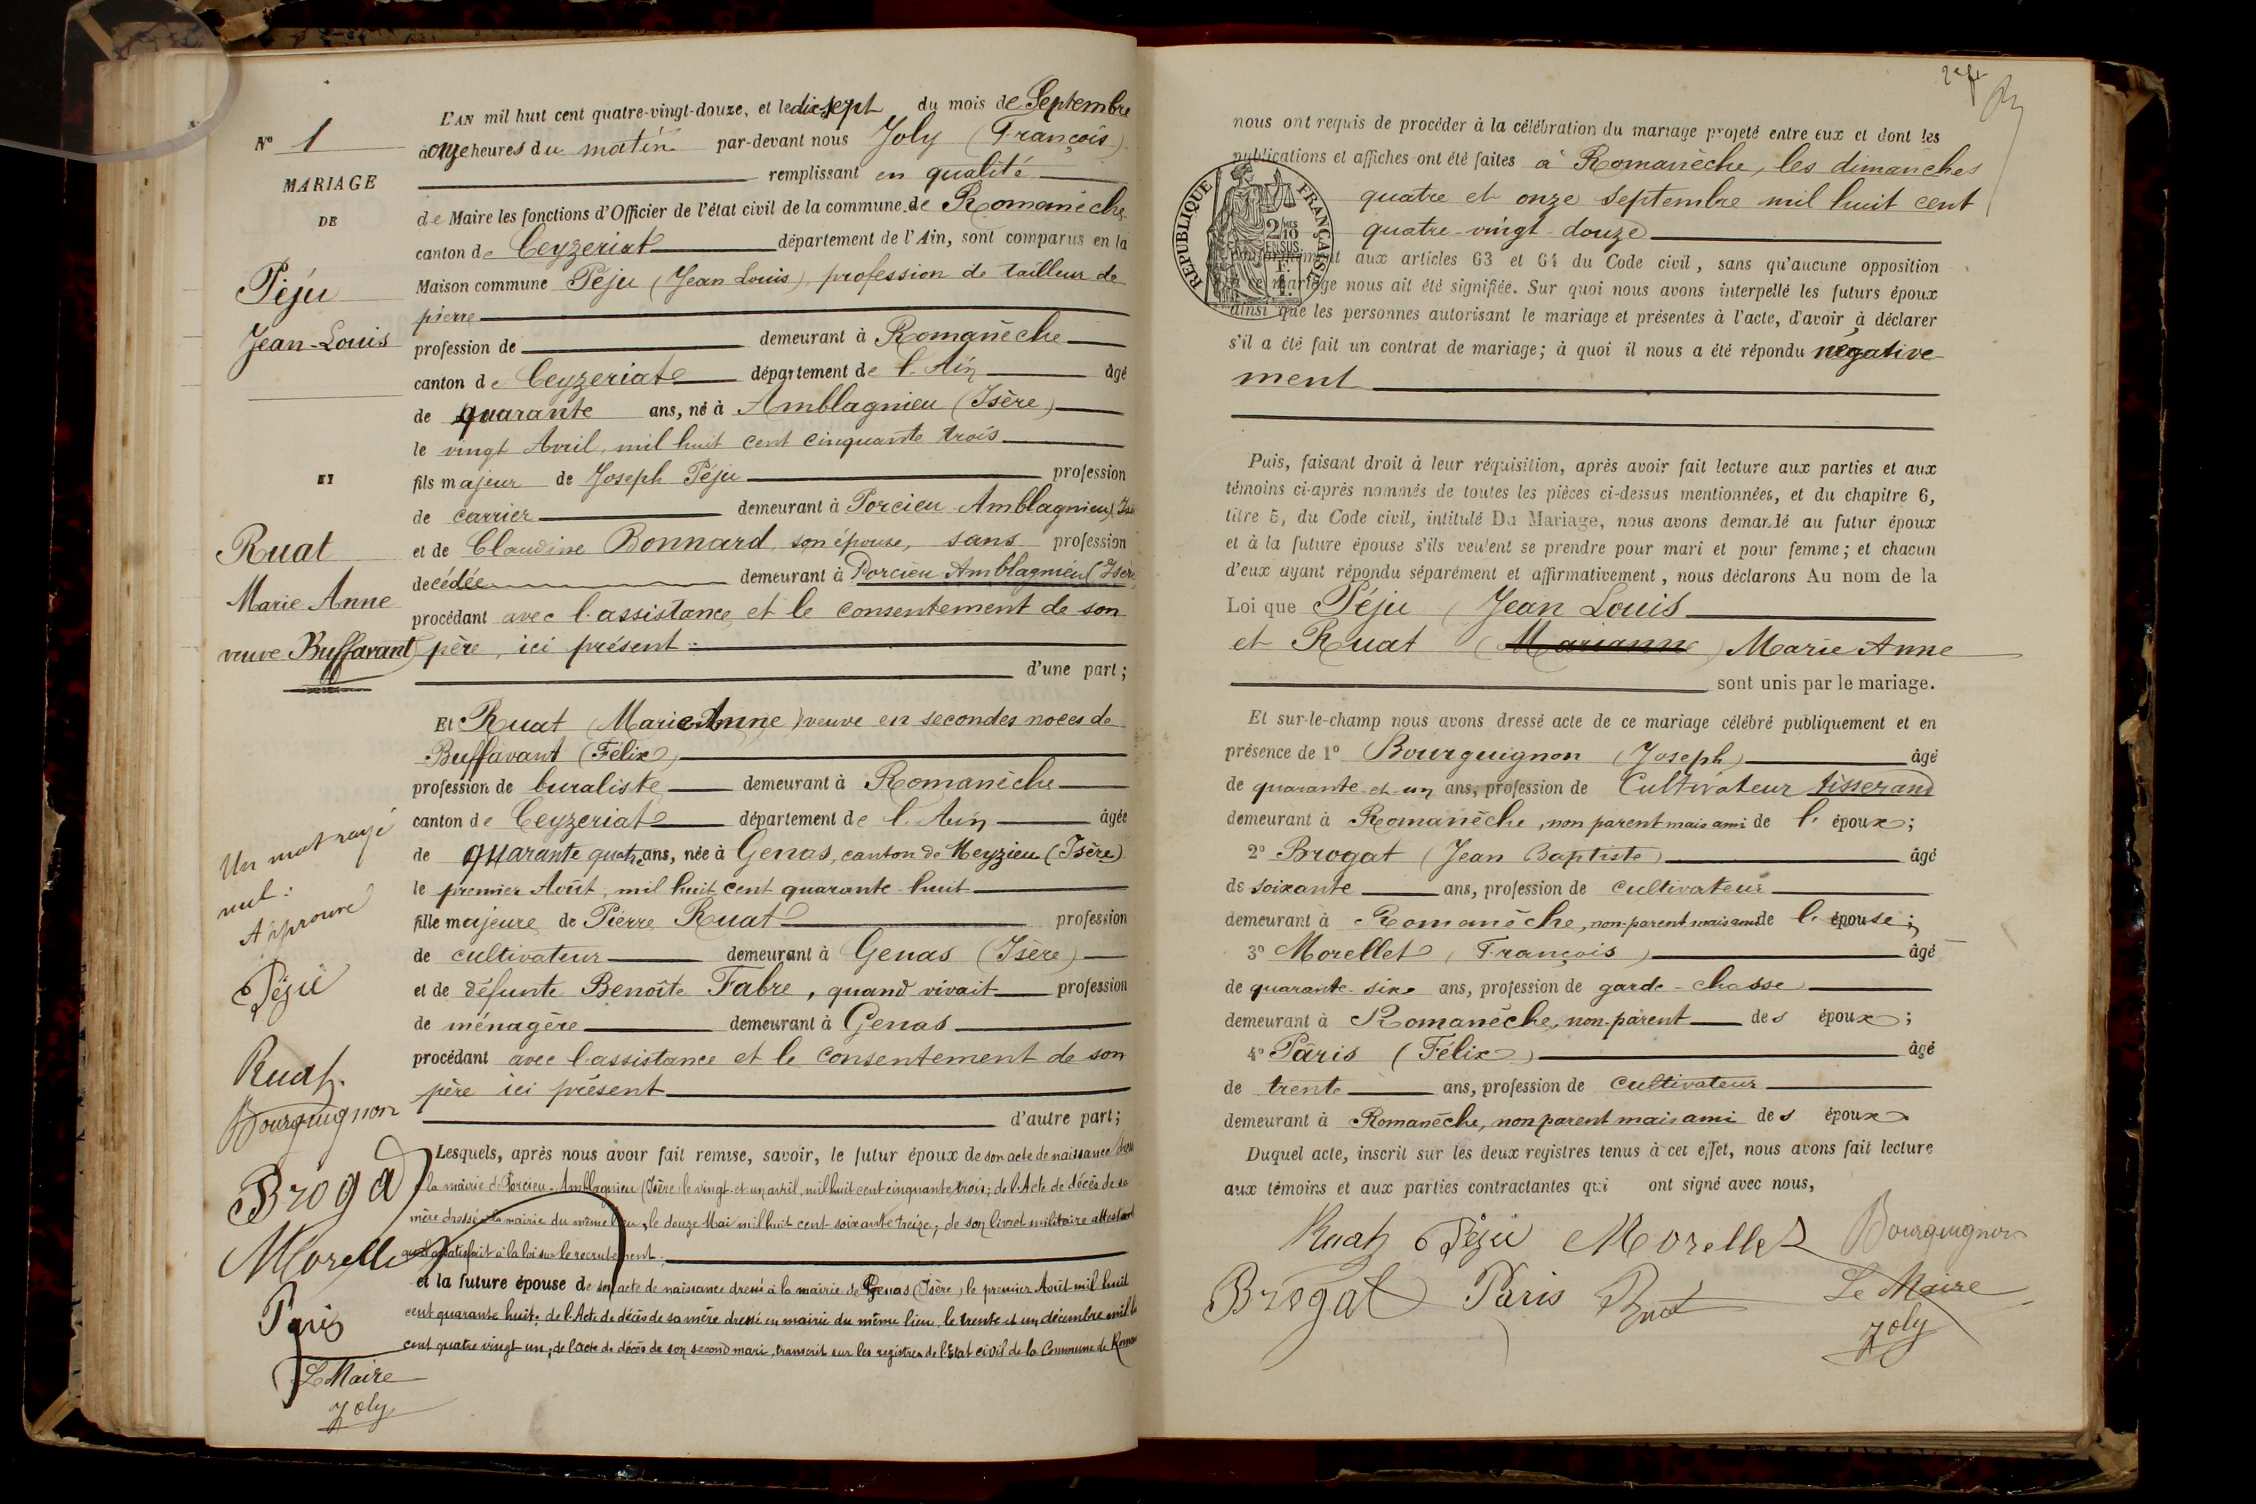 N° 1
MARIAGE
DE
Péju
Jean-Louis
ET
Ruat
Marie Anne
veuve Buffavant
Un mot rayé
nul :
Approuvé
Péju
Ruat
Bourguignon
Brogat
Morellet
Paris
Le Maire
Joly
L'AN mil huit cent quatre-vingt-douze, et le dix sept du mois de Septembre
à onze heures du matin par-devant nous Joly (François)
remplissant en qualité
de Maire les fonctions d'Officier de l'état civil de la commune de Romanèche
canton de Ceyzeriat département de l'Ain, sont comparus en la
Maison commune Péju (Jean Louis) profession de tailleur de
pierre
profession de demeurant à Romanèche
canton de Ceyzeriat département de l'Ain âgé
de quarante ans, né à Amblagnieu (Isère)
le vingt Avril, mil huit cent cinquante trois
fils majeur de Joseph Péju profession
de carrier demeurant à Porcieu Amblagnieu (Isè
et de Claudine Bonnard, son épouse, sans profession
décédée demeurant à Porcieu Amblagnieu (Isère
procédant avec l'assistance et le consentement de son
père, ici présent
d'une part;
Et Ruat (Marie Anne) veuve en secondes noces de
Buffavant (Félix)
profession de buraliste demeurant à Romanèche
canton de Ceyzeriat département de l'Ain âgée
de quarante quatre ans, née à Genas, canton de Meyzieu (Isère)
le premier Août, mil huit cent quarante huit
fille majeure de Pierre Ruat profession
de cultivateur demeurant à Genas (Isère)
et de défunte Benoîte Fabre, quand vivait profession
de ménagère demeurant à Genas
procédant avec l'assistance et le consentement de son
père ici présent
d'autre part;
Lesquels, après nous avoir fait remise, savoir, le futur époux de son acte de naissance
à la mairie de Porcieu-Amblagnieu (Isère) le vingt et un avril, mil huit cent cinquante trois; de l'Acte de décès de sa
mère dressé à la mairie du même lieu, le douze Mai mil huit cent soixante treize; de son livret militaire attestant
qu'il a satisfait à la loi sur le recrutement;
et la future épouse de son acte de naissance dressé à la mairie de Genas (Isère), le premier Août mil huit
cent quarante huit; de l'Acte de décès de sa mère dressé en mairie du même lieu, le trente et un décembre mil h
cent quatre vingt un; de l'acte de décès de son second mari, transcrit sur les registres de l'Etat civil de la Commune de Roman
nous ont requis de procéder à la célébration du mariage projeté entre eux et dont les
publications et affiches ont été faites à Romanèche, les dimanches
quatre et onze septembre mil huit cent
quatre-vingt-douze
RÉPUBLIQUE FRANÇAISE
2/10
EN SUS
F.
1.
aux articles 63 et 64 du Code civil, sans qu'aucune opposition
à ce mariage nous ait été signifiée. Sur quoi nous avons interpellé les futurs époux
ainsi que les personnes autorisant le mariage et présentes à l'acte, d'avoir à déclarer
s'il a été fait un contrat de mariage; à quoi il nous a été répondu négative
ment
Puis, faisant droit à leur réquisition, après avoir fait lecture aux parties et aux
témoins ci-après nommés de toutes les pièces ci-dessus mentionnées, et du chapitre 6,
titre 5, du Code civil, intitulé Du Mariage, nous avons demandé au futur époux
et à la future épouse s'ils veulent se prendre pour mari et pour femme; et chacun
d'eux ayant répondu séparément et affirmativement, nous déclarons Au nom de la
Loi que Péju (Jean Louis
et Ruat (Marianne) Marie Anne
sont unis par le mariage.
Et sur-le-champ nous avons dressé acte de ce mariage célébré publiquement et en
présence de 1° Bourguignon (Joseph) âgé
de quarante-et-un ans, profession de Cultivateur tisserand
demeurant à Romanèche, non parent mais ami de l' époux;
2° Brogat (Jean Baptiste) âgé
de soixante ans, profession de cultivateur
demeurant à Romanèche, non-parent mais ami de l' épouse;
3° Morellet (François) âgé
de quarante-six ans, profession de garde-chasse
demeurant à Romanèche, non-parent des époux;
4° Pâris (Félix) âgé
de trente ans, profession de cultivateur
demeurant à Romanèche, non parent mais ami des époux
Duquel acte, inscrit sur les deux registres tenus à cet effet, nous avons fait lecture
aux témoins et aux parties contractantes qui ont signé avec nous,
Ruat Péju Morellet Bourguignon
Brogat Paris Ruat Le Maire
Joly